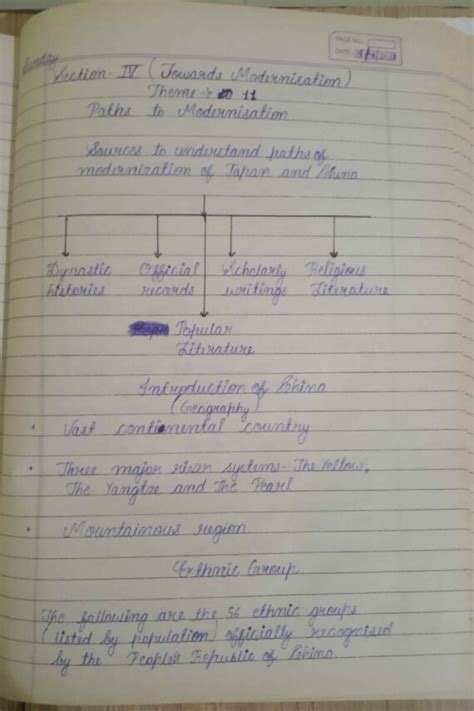 Sunday
PAGE NO.
DATE:
Section - IV (Towards Modernisation)
Theme 11
Paths to Modernisation
Sources to understand paths of
modernization of Japan and China
Dynastic Official Scholarly Religious
histories records writings Literature
Popular
Literature
Introduction of China
(Geography)
• Vast continental country
• Three major river systems - The Yellow,
The Yangtze and The Pearl
• Mountainous region
Ethnic Group
The following are the 56 ethnic groups
(listed by population) officially recognised
by the People's Republic of China.